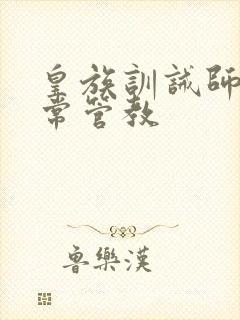 皇族訓誡師
常管教
魯樂漢